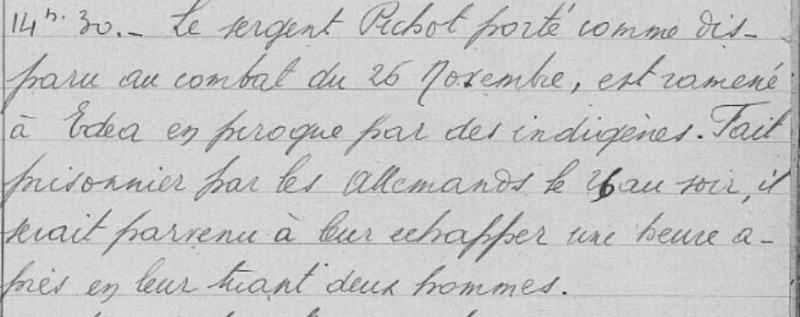 14h. 30. - Le sergent Pichot porté comme dis-
paru au combat du 26 Novembre, est ramené
à Edea en pirogue par des indigènes. Fait
prisonnier par les Allemands le 26 au soir, il
serait parvenu à leur echapper une heure a-
près en leur tuant deux hommes.